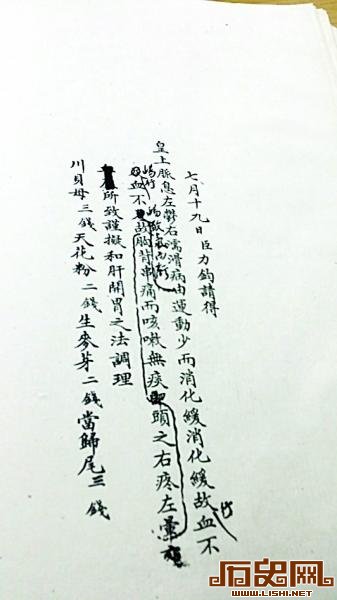 七月十九日臣力鈞請得
皇上脈息左鬱右濡滑病由運動少而消化緩消化緩故血不
血不故胸背串痛而咳嗽無痰即頭之右疼左
所致謹擬和肝開胃之法調理
川貝母三錢天花粉二錢生麥芽二錢當歸尾三錢
历史网
WWW.LISHI.NET